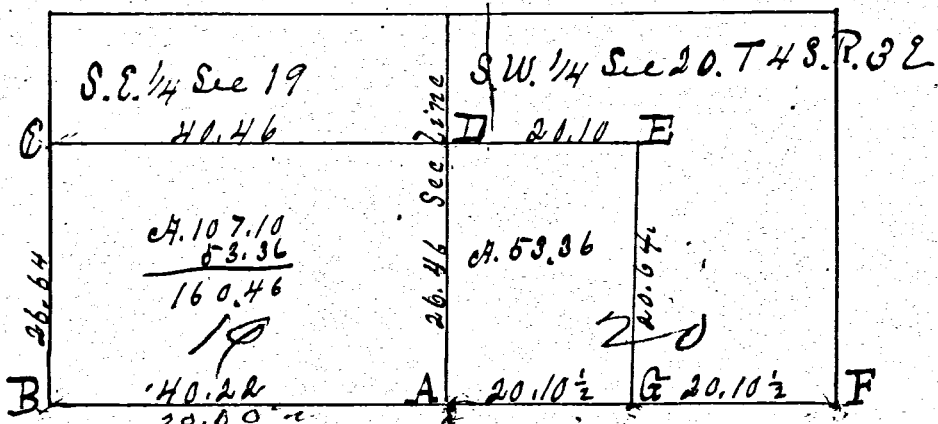 S.E. 1/4 Sec 19
S.W. 1/4 Sec 20. T 4 S. R. 3 E
C
40.46
D
20.10
E
Sec Line
26.64
A. 107.10
53.36
160.46
19
26.46
A. 53.36
26.64
20
B
40.22
A
20.10½
G
20.10½
F